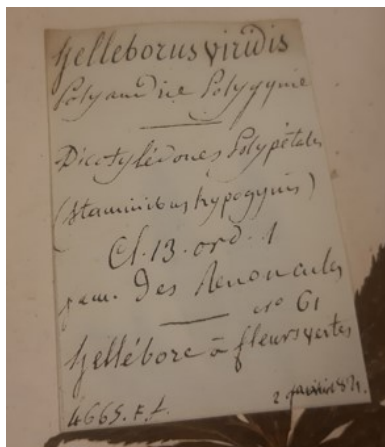 helleborus viridis
Polyandrie Polygynie
Dicotylédones Polypétales
(staminibus hypogynis)
Cl. 13. ord. 1
fam. Des Renoncules
n° 61
hellébore à fleurs vertes
4665. F. f.
2